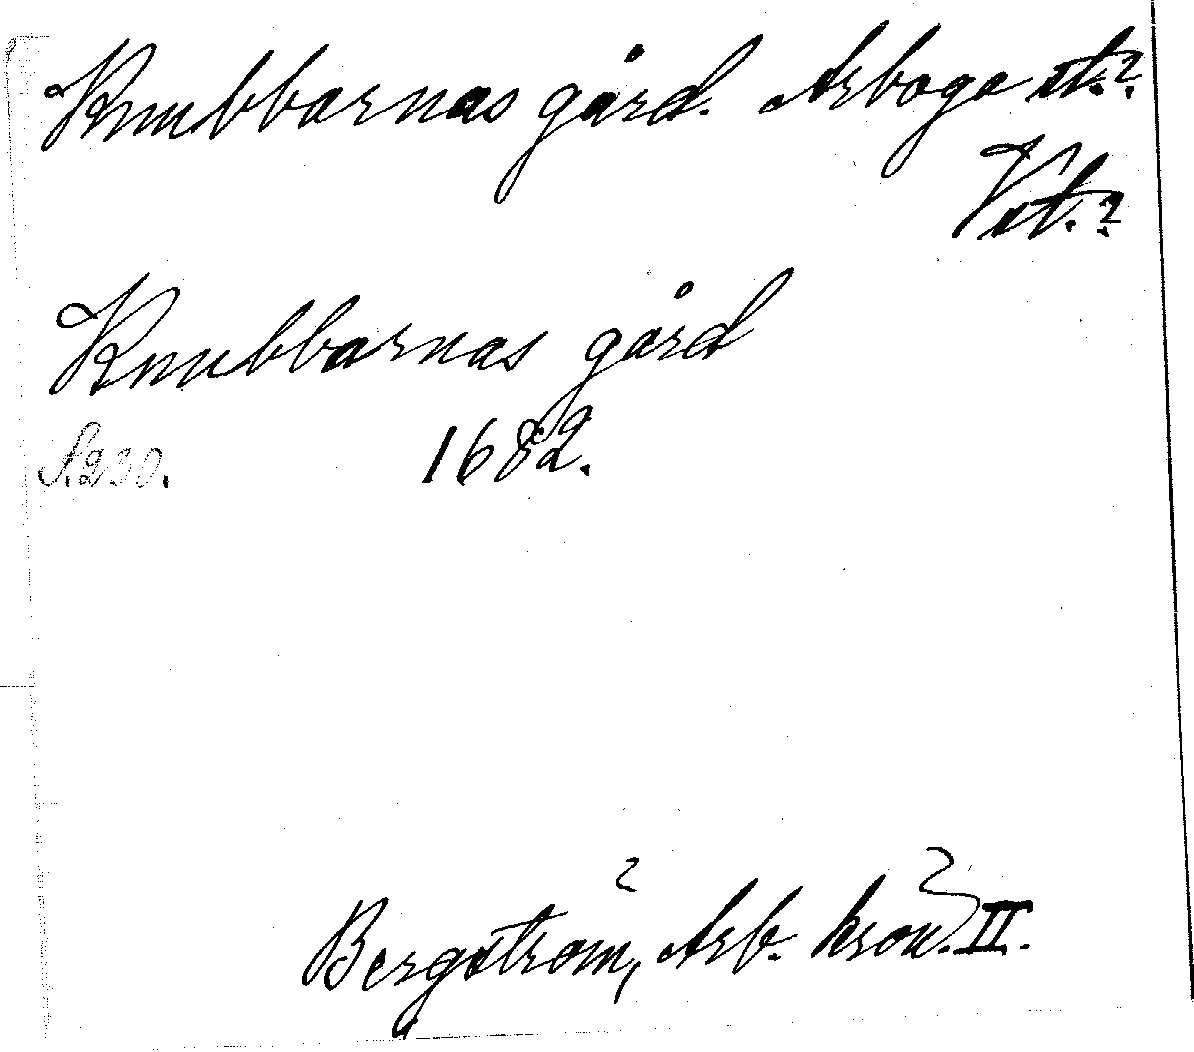 Knubbarnas gård. Arboga st.?
Vst.?
Knubbarnas gård
S. 230. 1682.
Bergström, Arb. krön. II.